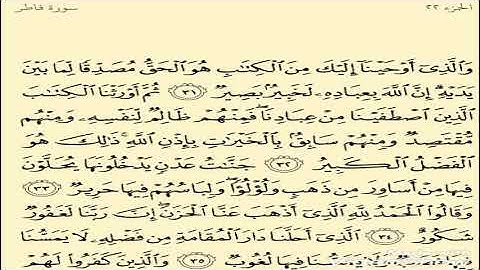 الجزء ٢٢
سورة فاطر
وَالَّذِي أَوْحَيْنَا إِلَيْكَ مِنَ الْكِتَابِ هُوَ الْحَقُّ مُصَدِّقًا لِمَا بَيْنَ
يَدَيْهِ إِنَّ اللَّهَ بِعِبَادِهِ لَخَبِيرٌ بَصِيرٌ ٣١ ثُمَّ أَوْرَثْنَا الْكِتَابَ
الَّذِينَ اصْطَفَيْنَا مِنْ عِبَادِنَا فَمِنْهُمْ ظَالِمٌ لِنَفْسِهِ وَمِنْهُمْ
مُقْتَصِدٌ وَمِنْهُمْ سَابِقٌ بِالْخَيْرَاتِ بِإِذْنِ اللَّهِ ذَٰلِكَ هُوَ
الْفَضْلُ الْكَبِيرُ ٣٢ جَنَّاتُ عَدْنٍ يَدْخُلُونَهَا يُحَلَّوْنَ
فِيهَا مِنْ أَسَاوِرَ مِنْ ذَهَبٍ وَلُؤْلُؤًا وَلِبَاسُهُمْ فِيهَا حَرِيرٌ ٣٣
وَقَالُوا الْحَمْدُ لِلَّهِ الَّذِي أَذْهَبَ عَنَّا الْحَزَنَ إِنَّ رَبَّنَا لَغَفُورٌ
شَكُورٌ ٣٤ الَّذِي أَحَلَّنَا دَارَ الْمُقَامَةِ مِنْ فَضْلِهِ لَا يَمَسُّنَا
يَمَسُّنَا فِيهَا لُغُوبٌ ٣٥ وَالَّذِينَ كَفَرُوا لَهُمْ